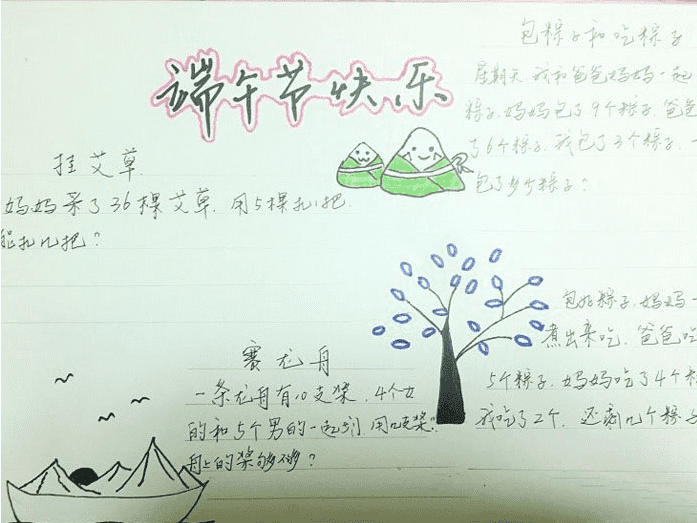 端午节快乐
包粽子和吃粽子
星期天.我和爸爸妈妈一起
粽子.妈妈包了9个粽子.爸爸
了6个粽子.我包了3个粽子.一
包了多少粽子?
挂艾草.
妈妈采了36棵艾草.用5棵扎1把.
能扎几把?
包好粽子.妈妈
煮出来吃.爸爸吃
5个粽子.妈妈吃了4个粽
我吃了2个.还剩几个粽子
赛龙舟
一条龙舟有10支桨.4个女
的和5个男的一起划.用几支桨?
舟上的桨够不够?